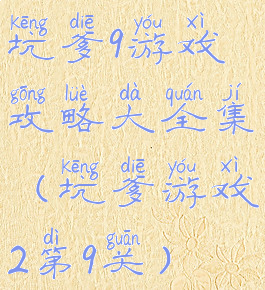 kēng diē yóu xì
坑爹9游戏
gōng lüè dà quán jí
攻略大全集
kēng diē yóu xì
(坑爹游戏
dì guān
2第9关)